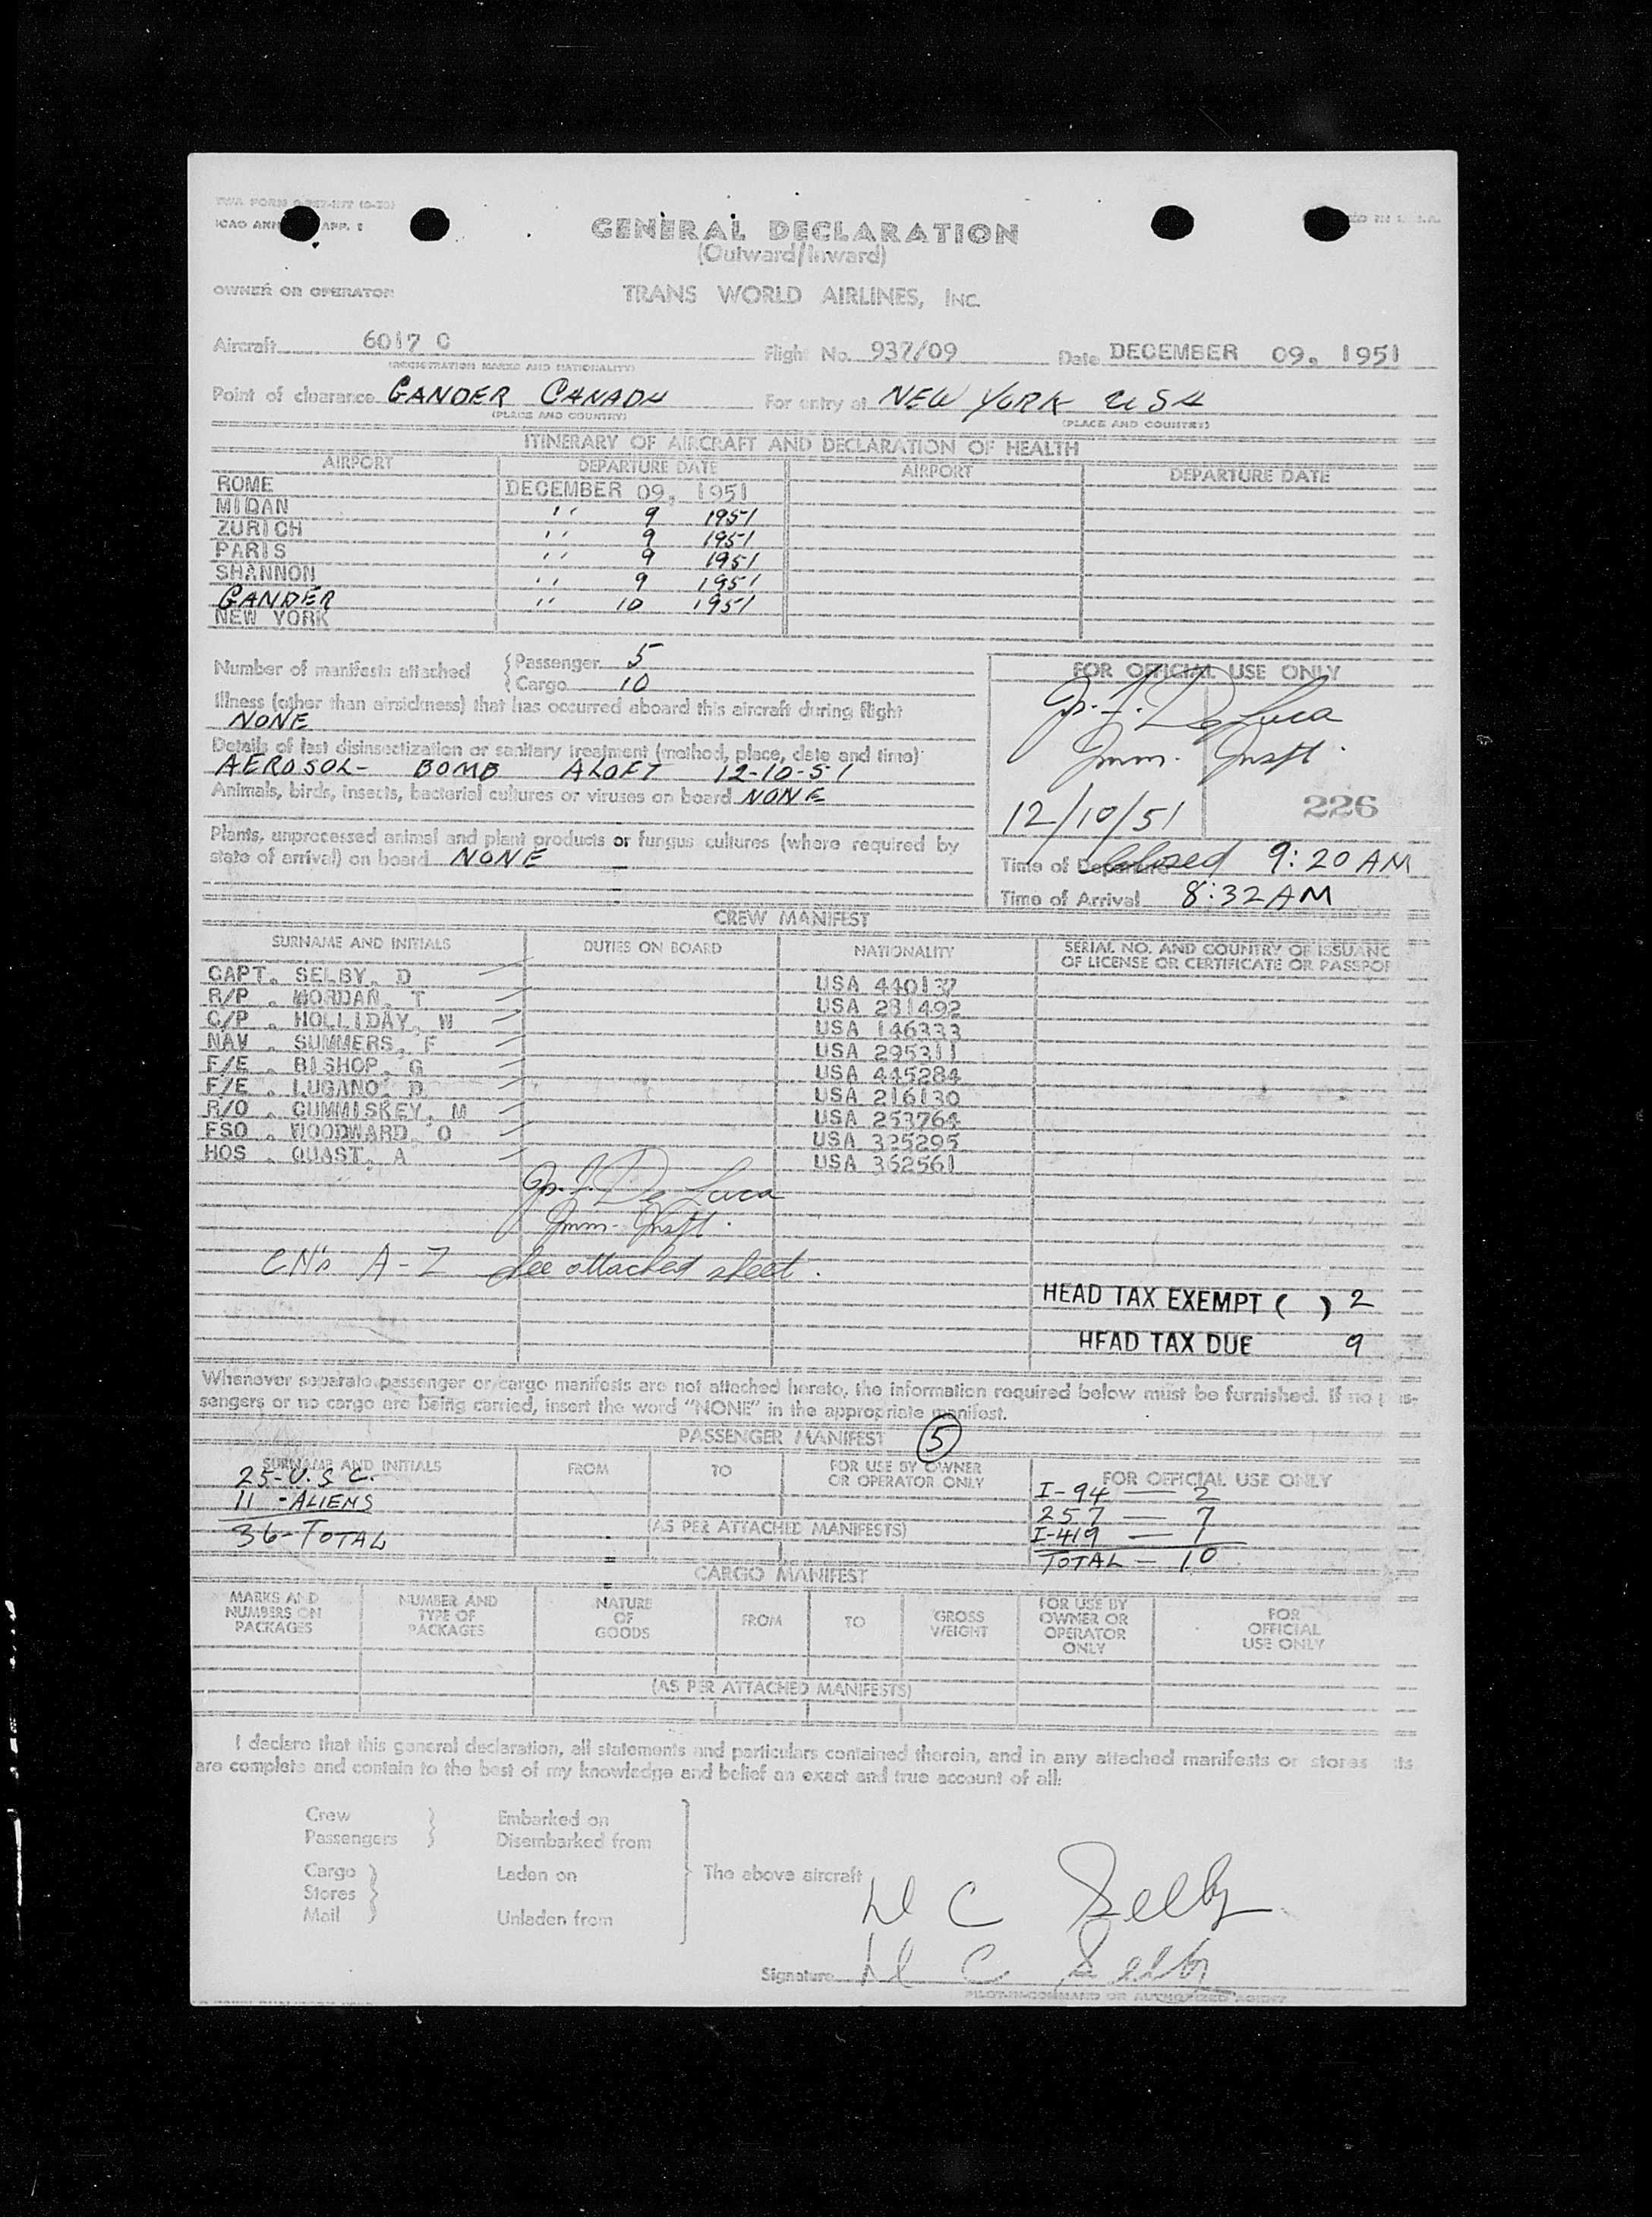 ICAO ANN APP. 1
GENERAL DECLARATION
(Outward/Inward)
OWNER OR OPERATOR TRANS WORLD AIRLINES, INC.
Aircraft 6017 C Flight No. 937/09 Date DECEMBER 09, 1951
(REGISTRATION MARKS AND NATIONALITY)
Point of clearance GANDER CANADA For entry at NEW YORK USA
(PLACE AND COUNTRY) (PLACE AND COUNTRY)
ITINERARY OF AIRCRAFT AND DECLARATION OF HEALTH
AIRPORT DEPARTURE DATE AIRPORT DEPARTURE DATE
ROME DECEMBER 09, 1951
MIDAN '' 9 1951
ZURICH '' 9 1951
PARIS '' 9 1951
SHANNON '' 9 1951
GANDER '' 10 1951
NEW YORK
Number of manifests attached { Passenger 5
{ Cargo 10
Illness (other than airsickness) that has occurred aboard this aircraft during flight
NONE
Details of last disinsectization or sanitary treatment (method, place, date and time)
AEROSOL- BOMB ALOFT 12-10-51
Animals, birds, insects, bacterial cultures or viruses on board NONE
Plants, unprocessed animal and plant products or fungus cultures (where required by
state of arrival) on board NONE
FOR OFFICIAL USE ONLY
De Luca
Imm. Inspt.
12/10/51 226
Time of Departure Closed 9:20 AM
Time of Arrival 8:32 AM
CREW MANIFEST
SURNAME AND INITIALS DUTIES ON BOARD NATIONALITY SERIAL NO. AND COUNTRY OF ISSUANC
OF LICENSE OR CERTIFICATE OR PASSPOR
CAPT. SELBY, D USA 440137
R/P . WORDAN, T USA 281492
C/P . HOLLIDAY, W USA 146333
NAV . SUMMERS, F USA 295311
F/E . BISHOP, G USA 445284
F/E . LUGANO, D USA 216130
R/O . CUMMISKEY, M USA 253764
FSO . WOODWARD, O USA 325295
HOS . QUAST, A USA 362561
De Luca
Imm. Inspt.
CN's A-Z See attached sheet.
HEAD TAX EXEMPT ( ) 2
HEAD TAX DUE 9
Whenever separate passenger or cargo manifests are not attached hereto, the information required below must be furnished. If no pas-
sengers or no cargo are being carried, insert the word "NONE" in the appropriate manifest.
PASSENGER MANIFEST 5
SURNAME AND INITIALS FROM TO FOR USE BY OWNER
OR OPERATOR ONLY FOR OFFICIAL USE ONLY
25-U.S.C.
11 -ALIENS
36-TOTAL
(AS PER ATTACHED MANIFESTS)
I-94 — 2
257 — 7
I-419 — 1
TOTAL — 10
CARGO MANIFEST
MARKS AND
NUMBERS ON
PACKAGES
NUMBER AND
TYPE OF
PACKAGES
NATURE
OF
GOODS
FROM
TO
GROSS
WEIGHT
FOR USE BY
OWNER OR
OPERATOR
ONLY
FOR
OFFICIAL
USE ONLY
(AS PER ATTACHED MANIFESTS)
I declare that this general declaration, all statements and particulars contained therein, and in any attached manifests or stores
are complete and contain to the best of my knowledge and belief an exact and true account of all:
Crew Embarked on
Passengers Disembarked from
Cargo Laden on The above aircraft
Stores
Mail Unladen from
D C Selby
Signature D C Selby
PILOT-IN-COMMAND OR AUTHORIZED AGENT